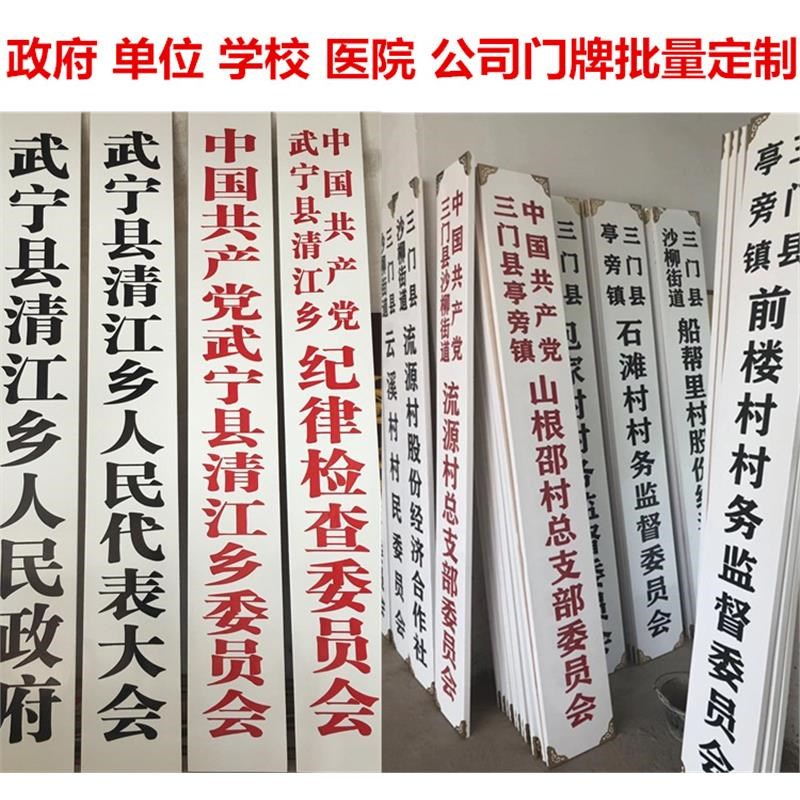 政府 单位 学校 医院 公司门牌批量定制
武宁县清江乡人民政府
武宁县清江乡人民代表大会
中国共产党武宁县清江乡委员会
中国共产党
武宁县清江乡
纪律检查委员会
沙柳街道
三门县
云溪村村民委员会
沙柳街道
三门县
流源村股份经济合作社
中国共产党
三门县沙柳街道
流源村总支部委员会
中国共产党
三门县亭旁镇
山根邵村总支部委员会
包家村村务监督委员会
三门县
亭旁镇
石滩村村务监督委员会
三门县
沙柳街道
船帮里村股份经
三门县
亭旁镇
前楼村村务监督委员会